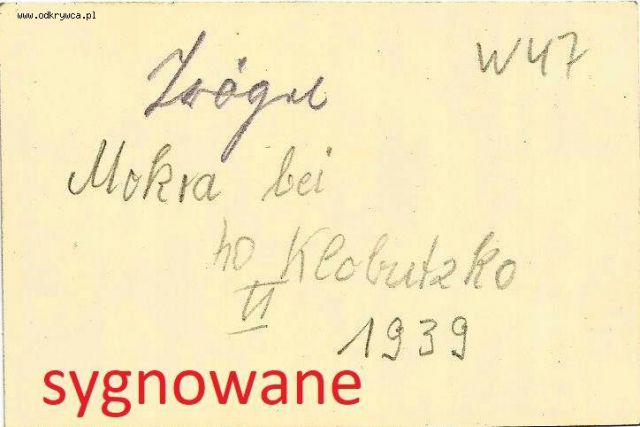 www.odkrywca.pl
W47
Mokra bei
40 Klobutzko
II
1939
sygnowane